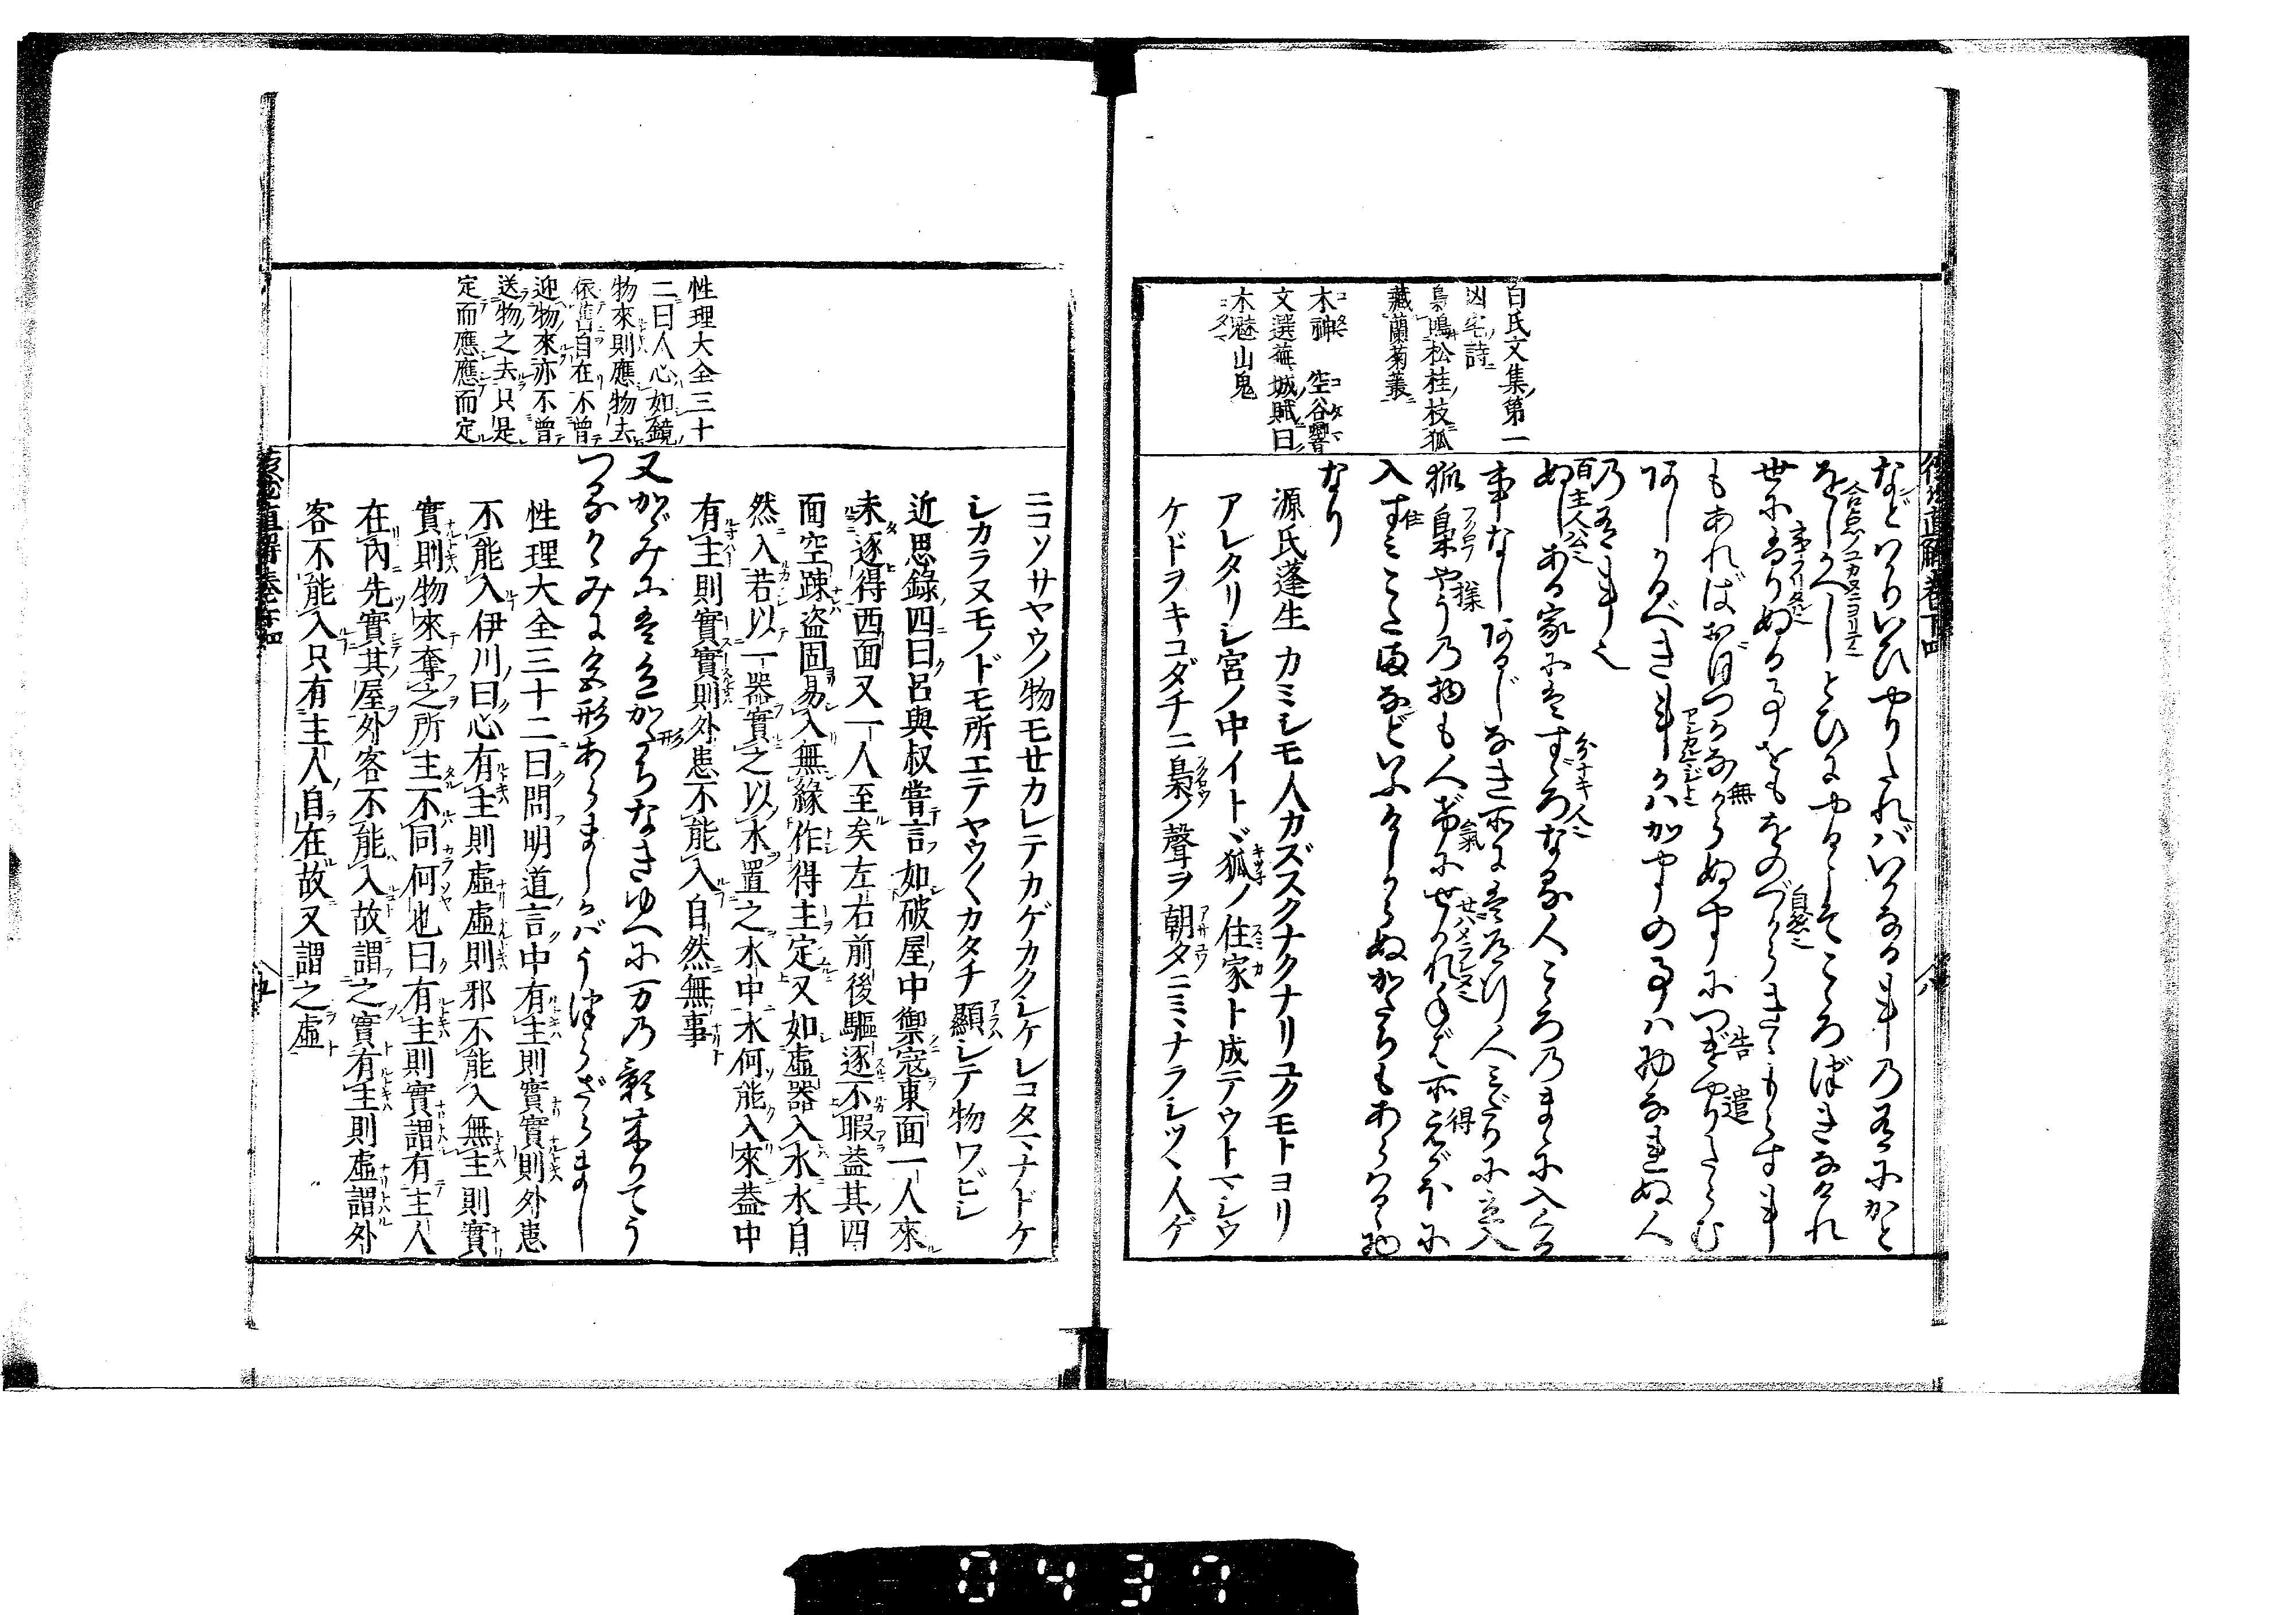 白氏文集第一
凶宅詩
梟鳴松桂枝狐
藏蘭菊叢
木神 空谷響
文選蕪城賦曰
木魅山鬼
世にふりぬる事をもをのづからきゝもらす
もあればおぼつかなからぬやうにつげやりたらむ
あしかるべき事かはかやうの事は物なれぬ人
の有事也
ぬしある家にはすゞろなる人こゝろのまゝに入くる
事なしあるじなき所には道行人みだりに立入
狐梟やうの物も人げにせかれねば所えがほに
入すみこたまなどいふけしからぬかたちもあらはるゝ物
なり
源氏蓬生カミシモ人カズスクナクナリユクモトヨリ
アレタリシ宮ノ中イトヾ狐ノ住家ト成テウトマシウ
ケドヲキコダチニ梟ノ聲ヲ朝夕ニミヽナラシツヽ人ゲ
ニコソサヤウノ物モせカレテカゲカクシケレコタマナドケ
シカラヌモノドモ所エテヤウ〱カタチ顯シテ物ワビシ
近思錄四曰呂與叔嘗言如破屋中禦寇東面一人來
未逐得西面又一人至矣左右前後驅逐不暇葢其四
面空踈盗固易入無緣作得主定又如虛器入水水自
然入若以一器實之以水置之水中水何能入來葢中
有主則實實則外患不能入自然無事
又かゞみには色かたちなきゆへに万の影来りてう
つるかゞみに色形あらましかばうつらざらまし
性理大全三十二曰問明道言中有主則實實則外患
不能入伊川曰心有主則虛虛則邪不能入無主則實
實則物來奪之所主不同何也曰有主則實謂有主人
在內先實其屋外客不能入故謂之實有主則虛謂外
客不能入只有主人自在故又謂之虛
性理大全三十
二曰人心如鏡
物來則應物去
依舊自在不曾
迎物來亦不曾
送物之去只是
定而應應而定
0437